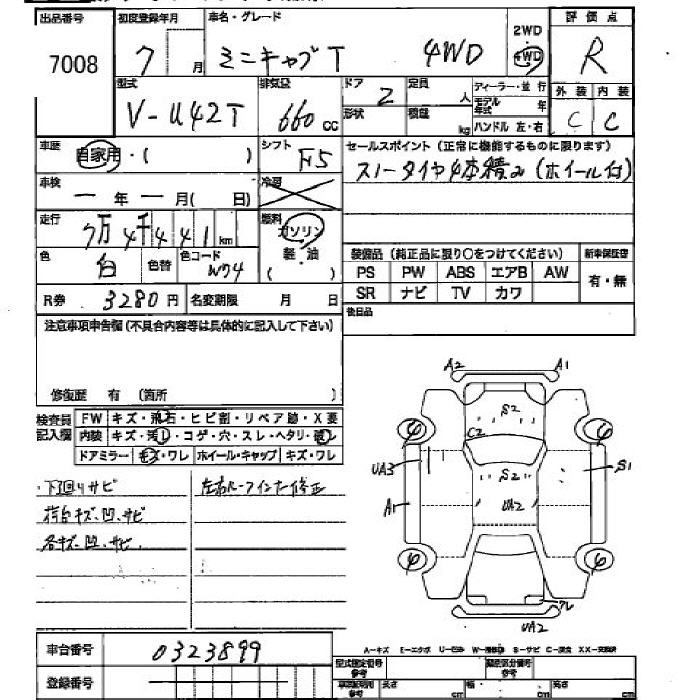 出品番号 初度登録年月 車名・グレード 2WD 評価点
7008 7 月 ミニキャブT 4WD 4WD R
型式 排気量 ドア 定員 ディーラー・並行 外装 内装
V-U42T 660 CC 2 人 モデル年式 年 C C
形状 積載 kg ハンドル 左・右
車歴 自家用・( ) シフト F5 セールスポイント (正常に機能するものに限ります)
スノータイヤ4本積み (ホイール付)
車検 ー 年 ー 月( 日) 冷房
走行 7万4千441km 燃料 ガソリン
軽・油
( )
色 白 色替 色コード W74 装備品 (純正品に限り○をつけてください) 新車保証書
PS PW ABS エアB AW 有・無
SR ナビ TV カワ
R券 3280円 名変期限 月 日 後日品
注意事項申告欄 (不具合内容等は具体的に記入して下さい)
修復歴 有 (箇所 )
検査員記入欄 FW キズ・飛石・ヒビ割・リペア跡・X要
内装 キズ・汚れ・コゲ・穴・スレ・ヘタリ・破れ
ドアミラー キズ・ワレ ホイール・キャップ キズ・ワレ
・下回りサビ
荷台キズ、凹、サビ
各キズ、凹、サビ、
A2 A1
S2
C2
4 4
UA3 S2 S1
A1 UA2
4 4
ワレ
UA2
車台番号 0323899
A-キズ E-エクボ U-凹み W-補修跡 S-サビ C-腐食 XX-交換済
型式指定番号 参考 類別区分番号 参考
登録番号 長さ cm 幅 cm 高さ cm